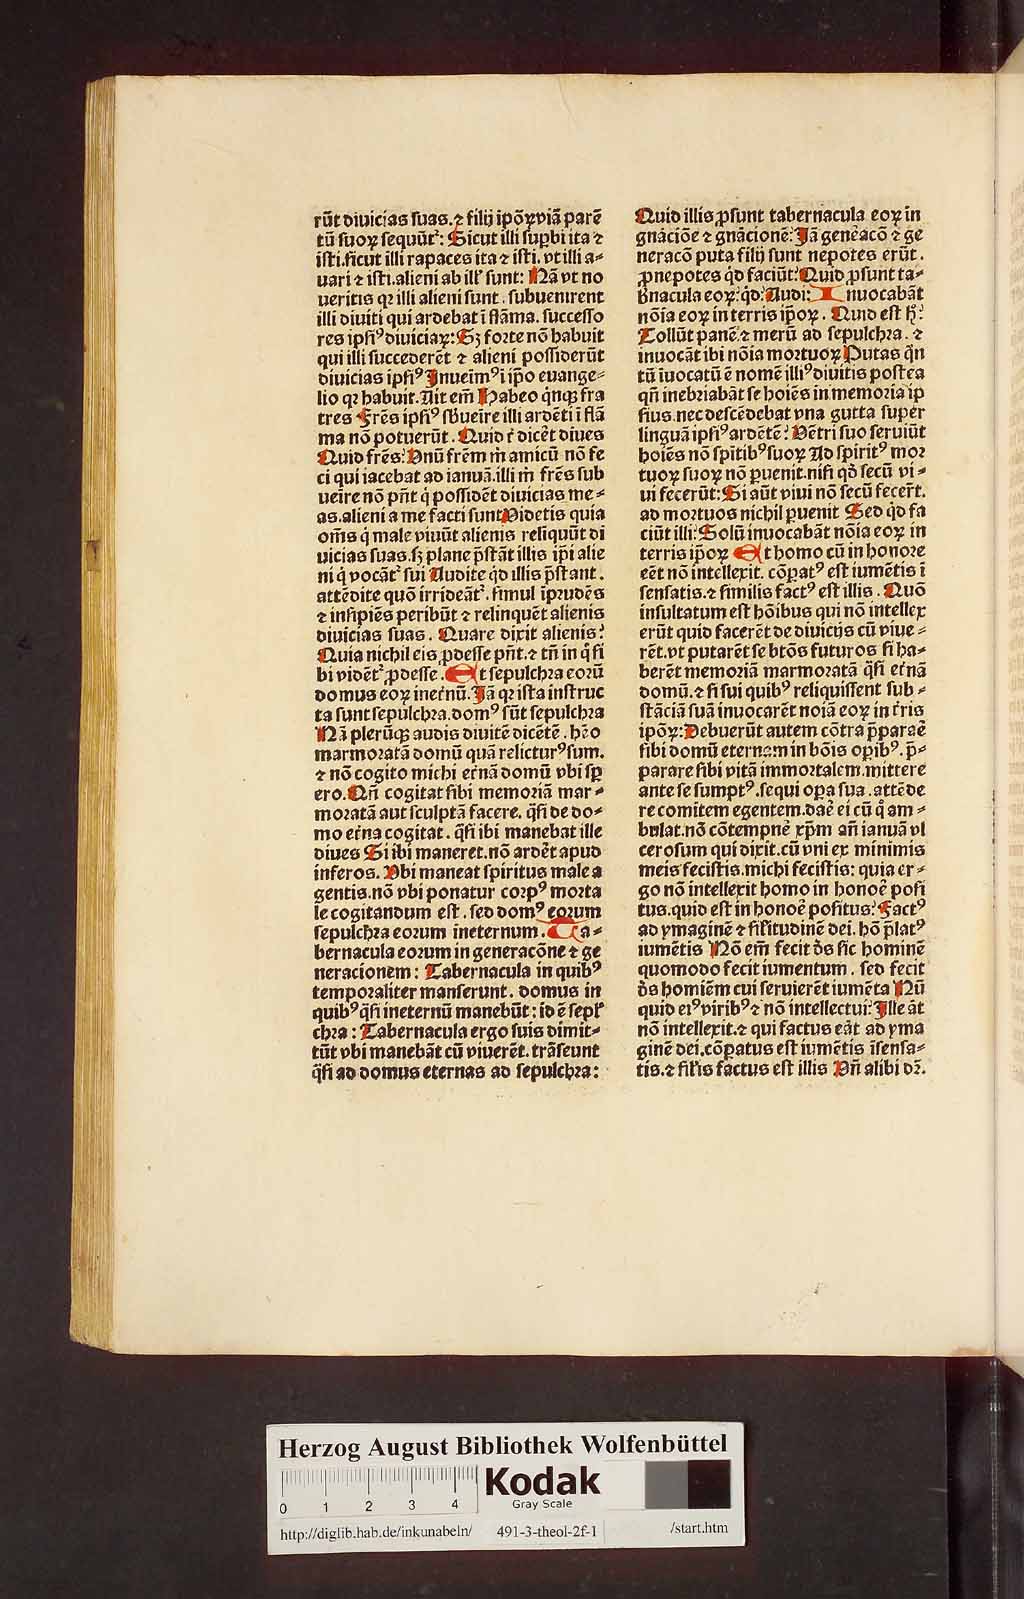 rūt diuicias suas.⁊ filij ipōꝝviā parē
tū suoꝝ sequūt᷑: Sicut illi suꝑbi ita ⁊
isti.sicut illi rapaces ita ⁊ isti. vt illi a⸗
uari ⁊ isti.alieni ab ill' sunt: Nā vt no
ueritis qꝛ illi alieni sunt . subuenirent
illi diuiti qui ardebat ī flāma. successo
res ipsiꝰ diuiciaꝝ: Sꝫ forte nō habuit
qui illi succederēt ⁊ alieni possiderūt
diuicias ipsiꝰ Jnueimꝰ ī ip̄o euange⸗
lio qꝛ habuit. Ait em̄ Habeo q̇nqꝫ fra
tres Fr̄es ipsiꝰ sb̄ueire illi ardēti ī flā
ma nō potuerūt . Quid r̄ dicēt diues
Quid fr̄es? Vnū fr̄em m̄ amicū nō fe
ci qui iacebat ad ianuā.illi m̄ fr̄es sub
ueire nō pn̄t q̇ possidēt diuicias me⸗
as.alieni a me facti sunt Videtis quia
om̄s q̇ male viuūt alienis reliquūt di
uicias suas.sꝫ plane p̄stāt illis ip̄i alie
ni q̇ vocāt᷑ sui Audite qd̄ illis p̄stant .
attēdite quō irrideāt᷑. simul īprudēs
⁊ insipiēs peribūt ⁊ relinquēt alienis
diuicias suas . Quare dixit alienis?
Quia nichil eis ꝓdesse pn̄t.⁊ tn̄ in q̇ si
bi vidēt᷑ ꝓdesse . Et sepulchra eorū
domus eoꝝ inet̄nū. Jā qꝛ ista instruc
ta sunt sepulchra.domꝰ sūt sepulchra
Nā plerūqꝫ audis diuitē dicētē . hēo
marmoratā domū quā relicturꝰ sum.
⁊ nō cogito michi et̄nā domū vbi sꝑ
ero. Qn̄ cogitat sibi memoriā mar⸗
moratā aut sculptā facere. q̄si de do⸗
mo et̄na cogitat . q̄si ibi manebat ille
diues Si ibi maneret.nō ardēt apud
inferos. Vbi maneat spiritus male a
gentis.nō vbi ponatur corpꝰ morta
le cogitandum est . sed domꝰ eorum
sepulchra eorum ineternum . Ta⸗
bernacula eorum in generacōne ⁊ ge
neracionem : Tabernacula in quibꝰ
temporaliter manserunt . domus in
quibꝰ q̄si ineternū manebūt : id ē sepl'
chra : Tabernacula ergo suis dimit⸗
tūt vbi manebāt cū viuerēt. trāseunt
q̄si ad domus eternas ad sepulchra :
Quid illis ꝓsunt tabernacula eoꝝ in
gnāciōe ⁊ gnācionē? Jā gene᷑acō ⁊ ge
neracō puta filij sunt nepotes erūt .
ꝓnepotes qd̄ faciūt? Quid ꝓsunt ta⸗
b̄nacula eoꝝ? qd̄? Audi: Inuocabāt
nōia eoꝝ in terris ip̄oꝝ . Quid est h̄?
Tollūt panē ⁊ merū ad sepulchra . ⁊
inuocāt ibi nōia mortuoꝝ Putas q̄n
tū īuocatū ē nomē illiꝰ diuitis postea
qn̄ inebriabāt se hoīes in memoria ip
sius.nec descēdebat vna gutta super
linguā ipsiꝰ ardētē? Vētri suo seruiūt
hoīes nō sp̄itibꝰ suoꝝ Ad spiritꝰ mor
tuoꝝ suoꝝ nō ꝑuenit.nisi qd̄ secū vi⸗
ui fecerūt: Si aūt viui nō secū fecer̄t.
ad mortuos nichil ꝑuenit Sed qd̄ fa
ciūt illi? Solū inuocabāt nōia eoꝝ in
terris ip̄oꝝ Et homo cū in honore
eēt nō intellexit. cōpatꝰ est iumētis ī
sensatis.⁊ similis factꝰ est illis . Quō
insultatum est hōibus qui nō intellex
erūt quid facerēt de diuicijs cū viue⸗
rēt.vt putarēt se btōs futuros si ha⸗
berēt memoriā marmoratā q̄si et̄nā
domū.⁊ si sui quibꝰ reliquissent sub⸗
stāciā suā inuocarēt noīa eoꝝ in t̄ris
ipōꝝ: Debuerūt autem cōtra p̄parae᷑
sibi domū eternam in bōis oꝑibꝰ. p̄⸗
parare sibi vitā immortalem.mittere
ante se sumptꝰ.sequi oꝑa sua .attēde
re comitem egentem.dae᷑ ei cū q̊ am⸗
bulat.nō cōtempne᷑ xp̄m an̄ ianuā vl
cerosum qui dixit.cū vni ex minimis
meis fecistis.michi fecistis: quia er⸗
go nō intellexit homo in honoe᷑ posi
tus.quid est in honoe᷑ positus? Factꝰ
ad ymaginē ⁊ sil'itudinē dei. hō p̄latꝰ
iumētis Nō em̄ fecit d̄s sic hominē
quomodo fecit iumentum . sed fecit
d̄s homiēm cui seruierēt iumēta Nū
quid eiꝰ viribꝰ ⁊ nō intellectui? Jlle āt
nō intellexit.⁊ qui factus eāt ad yma
ginē dei.cōpatus est iumētis īsensa⸗
tis.⁊ sil'is factus est illis Vn̄ alibi dꝛ.
Herzog August Bibliothek Wolfenbüttel
0 1 2 3 4
Kodak
Gray Scale
http://diglib.hab.de/inkunabeln/ 491-3-theol-2f-1 /start.htm